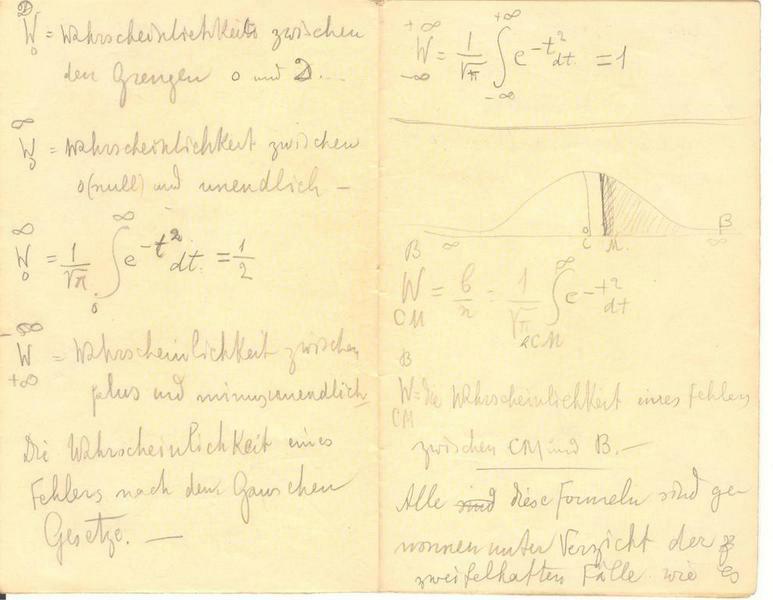 D
W = Wahrscheinlichkeit zwischen
0
den Grenzen 0 und D...
∞
W = Wahrscheinlichkeit zwischen
0
0 (null) und unendlich –
∞
W = 1/√π ∫ e^{-t²} dt. = 1/2
0
-∞
W = Wahrscheinlichkeit zwischen
+∞
plus und minus unendlich
Die Wahrscheinlichkeit eines
Fehlers nach dem Gausschen
Gesetze. —
+∞
W = 1/√π ∫ e^{-t²} dt. = 1
-∞
B
0 C M. ∞
B ∞
W = b/n = 1/√π ∫ e^{-t²} dt
CM
B
W = die Wahrscheinlichkeit eines Fehlers
CM
zwischen CM und B. —
Alle sind diese Formeln sind ge-
wonnen unter Verzicht der
zweifelhaften Fälle wie es